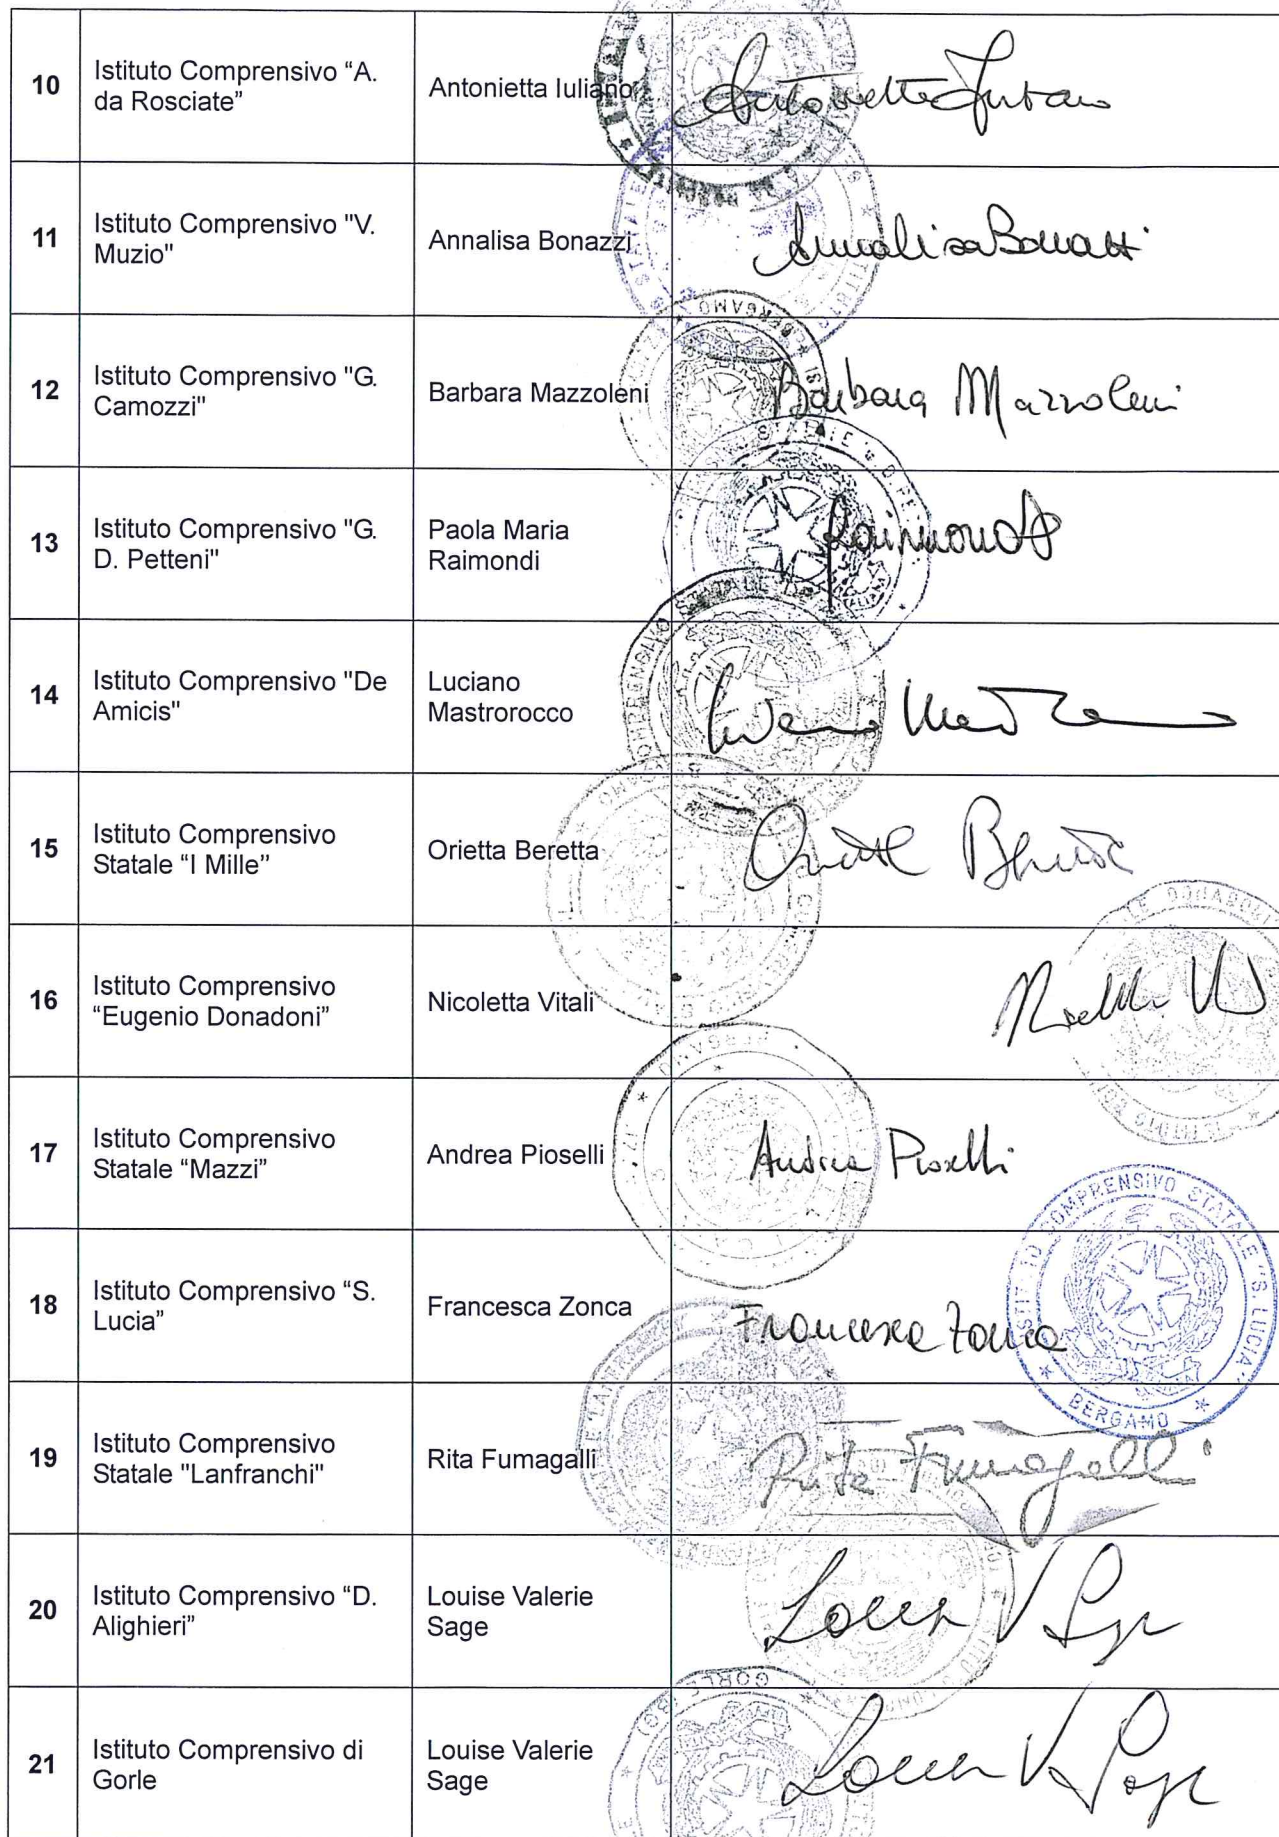 10
Istituto Comprensivo “A.
da Rosciate”
Antonietta Iuliano
11
Istituto Comprensivo "V.
Muzio"
Annalisa Bonazzi
Annalisa Bonazzi
12
Istituto Comprensivo "G.
Camozzi"
Barbara Mazzoleni
BERGAMO
Barbara Mazzoleni
13
Istituto Comprensivo "G.
D. Petteni"
Paola Maria
Raimondi
STATALE
Raimondi
14
Istituto Comprensivo "De
Amicis"
Luciano
Mastrorocco
15
Istituto Comprensivo
Statale “I Mille”
Orietta Beretta
16
Istituto Comprensivo
“Eugenio Donadoni”
Nicoletta Vitali
17
Istituto Comprensivo
Statale “Mazzi”
Andrea Pioselli
Andrea Pioselli
18
Istituto Comprensivo “S.
Lucia”
Francesca Zonca
Francesca Zonca
ISTITUTO COMPRENSIVO STATALE "S. LUCIA"
* BERGAMO *
19
Istituto Comprensivo
Statale "Lanfranchi"
Rita Fumagalli
Rita Fumagalli
20
Istituto Comprensivo “D.
Alighieri”
Louise Valerie
Sage
21
Istituto Comprensivo di
Gorle
Louise Valerie
Sage
GORLE (BG)